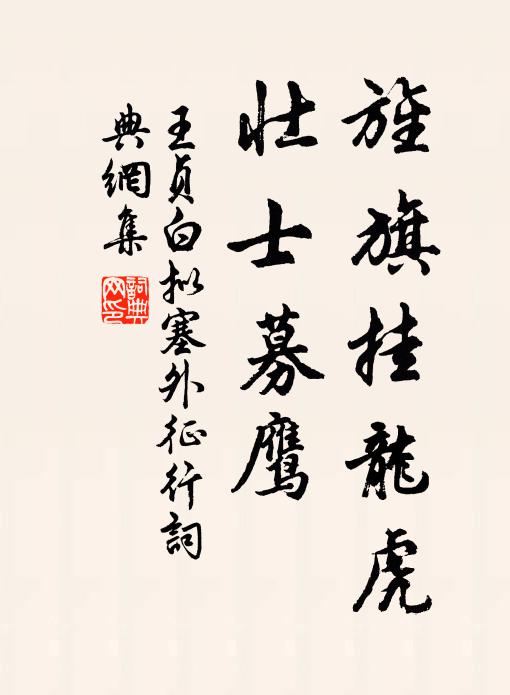 旌旗挂龍虎
壯士募鹰
王貞白拟塞外征行詞
典網集
詞典網印